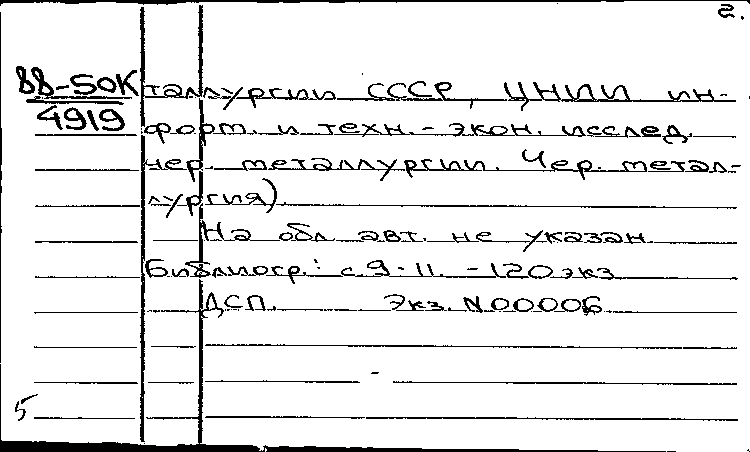 2.
88-50К таллургии СССР, ЦНИИ ин-
4919 форм. и техн.-экон. исслед.
чер. металлургии. Чер. метал-
лургия).
На обл. авт. не указан.
Библиогр.: с. 9-11. - 120 экз
ДСП. Экз. N 00006
5